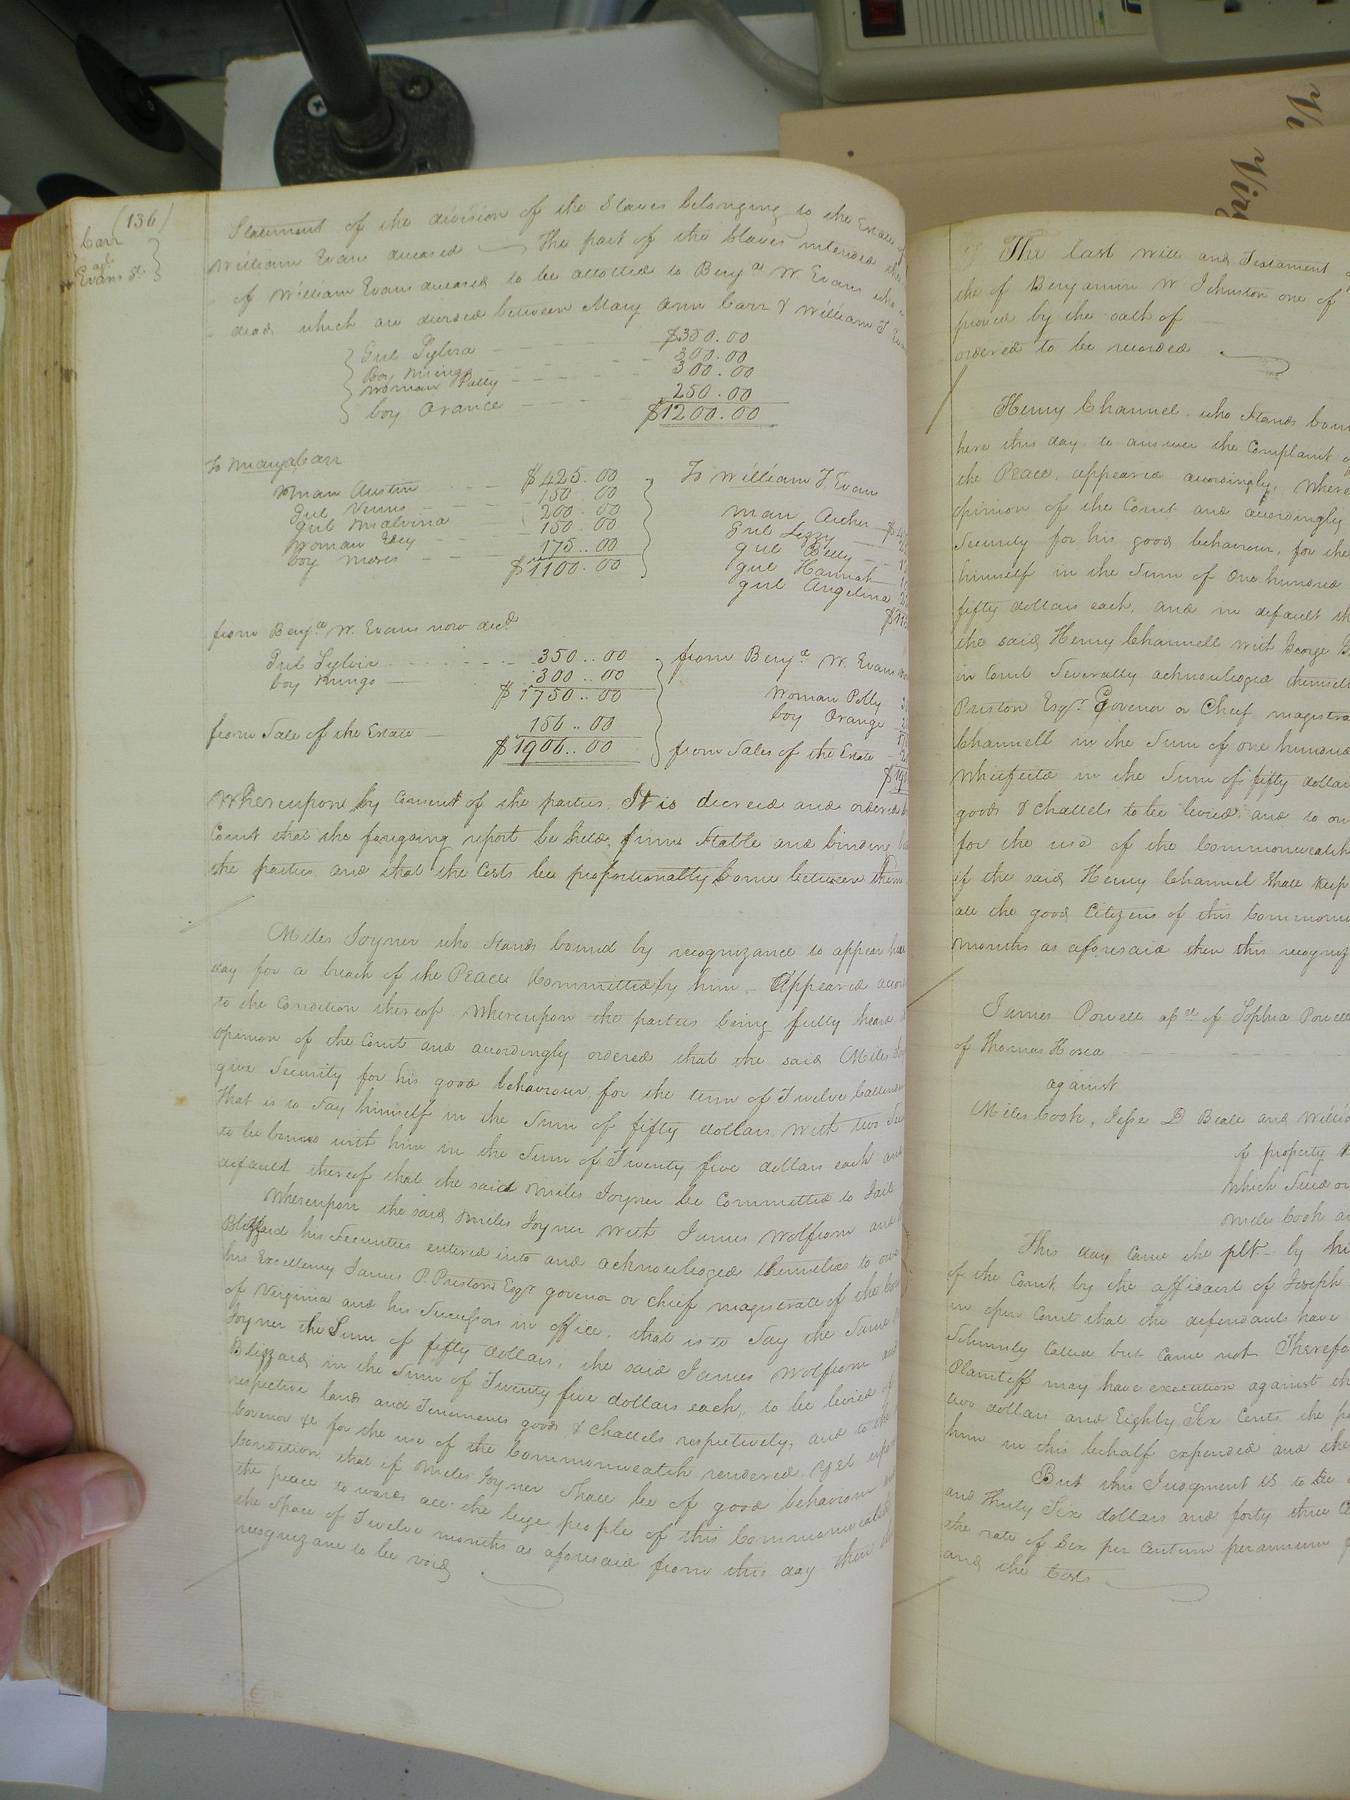 (136)
Carr
and
Evans &c
Statement of the division of the Slaves belonging to the Estate of
William Evans deceased The part of the Slaves intended
of William Evans deceased to be allotted to Benja W. Evans who
dead which are divided between Mary Ann Carr & William T
Girl Sylvia $350.00
Boy Mingo 300.00
Woman Patty 300.00
boy Orange 250.00
$1200.00
To Mary A Carr
man Austin $425.00
Girl Venus 150.00
girl Malvina 200.00
Woman Edey 150.00
boy Moses 175..00
$1100.00
from Benja W. Evans now decd
Girl Sylvia 350..00
boy Mingo 300..00
$1750..00
from Sale of the Estate 156..00
$1906..00
To William T Evans
man Archer
Girl Lizzy
girl Betty
girl Hannah
girl Angelina
from Benja W. Evans
Woman Patty
boy Orange
from Sales of the Estate
Whereupon by Consent of the parties, It is decreed and ordered
Court that the foregoing report be held, firm Stable and binding
the parties and that the Costs be proportionally borne between them
Miles Joyner who Stands bound by recognizance to appear here
day for a breach of the Peace Committed by him, Appeared
to the Condition thereof Whereupon the parties being fully heard
Opinion of the Court and accordingly ordered that the said Miles
give Security for his good behaviour, for the term of Twelve
that is to Say himself in the Sum of fifty dollars, with two
to be bound with him in the Sum of Twenty five dollars each and
default thereof that the said Miles Joyner be Committed to Jail
Whereupon the said Miles Joyner with James Wolfrom and
Blizzard his Securities entered into and acknowledged themselves to owe
his Excellency James P. Preston Esqr. govenor or chief magistrate of the
of Virginia and his Successors in office, that is to Say the Same
Joyner the Sum of fifty dollars, the said James Wolfrom and
Blizzard in the Sum of Twenty five dollars each, to be levied of
respective lands and Tenements goods & Chattels respectively, and to the
Govenor &c for the use of the Commonwealth rendered. Yet upon
Condition that if Miles Joyner Shall be of good behaviour
the peace towards all the liege people of this Commonwealth
the Space of Twelve months as aforesaid from this day then
recognizance to be void
The last will and Testament
the of Benjamin W Johnston one of
proved by the oath of
ordered to be recorded
Henry Channel who Stands
here this day to answer the Complaint of
the Peace, appeared accordingly,
opinion of the Court and accordingly
Security for his good behaviour, for the
himself in the Sum of One hundred
fifty dollars each, and in default
the said Henry Channell with George
in Court Severally acknowledged
Preston Esqr. Govenor or Chief
Channell in the Sum of one hundred
Whitfield in the Sum of fifty
goods & Chattels to be levied, and to
for the use of the Commonwealth
if the said Henry Channel Shall keep
all the good Citizens of this
months as aforesaid then this
James Powell
of Sophia Powell
of Thomas Hosea
against
Miles Cook, Jesse D Beale and
of property
which
Miles Cook
This day came the plt by
of the Court by the affidavit of Joseph
in open Court that the defendants have
Solemnly Called but Came not Therefore
Plaintiff may have execution against
two dollars and Eighty Six Cents the
him in this behalf expended and the
But this Judgment is to be
and thirty Six dollars and forty three
the rate of Six per Centum per annum
and the Costs